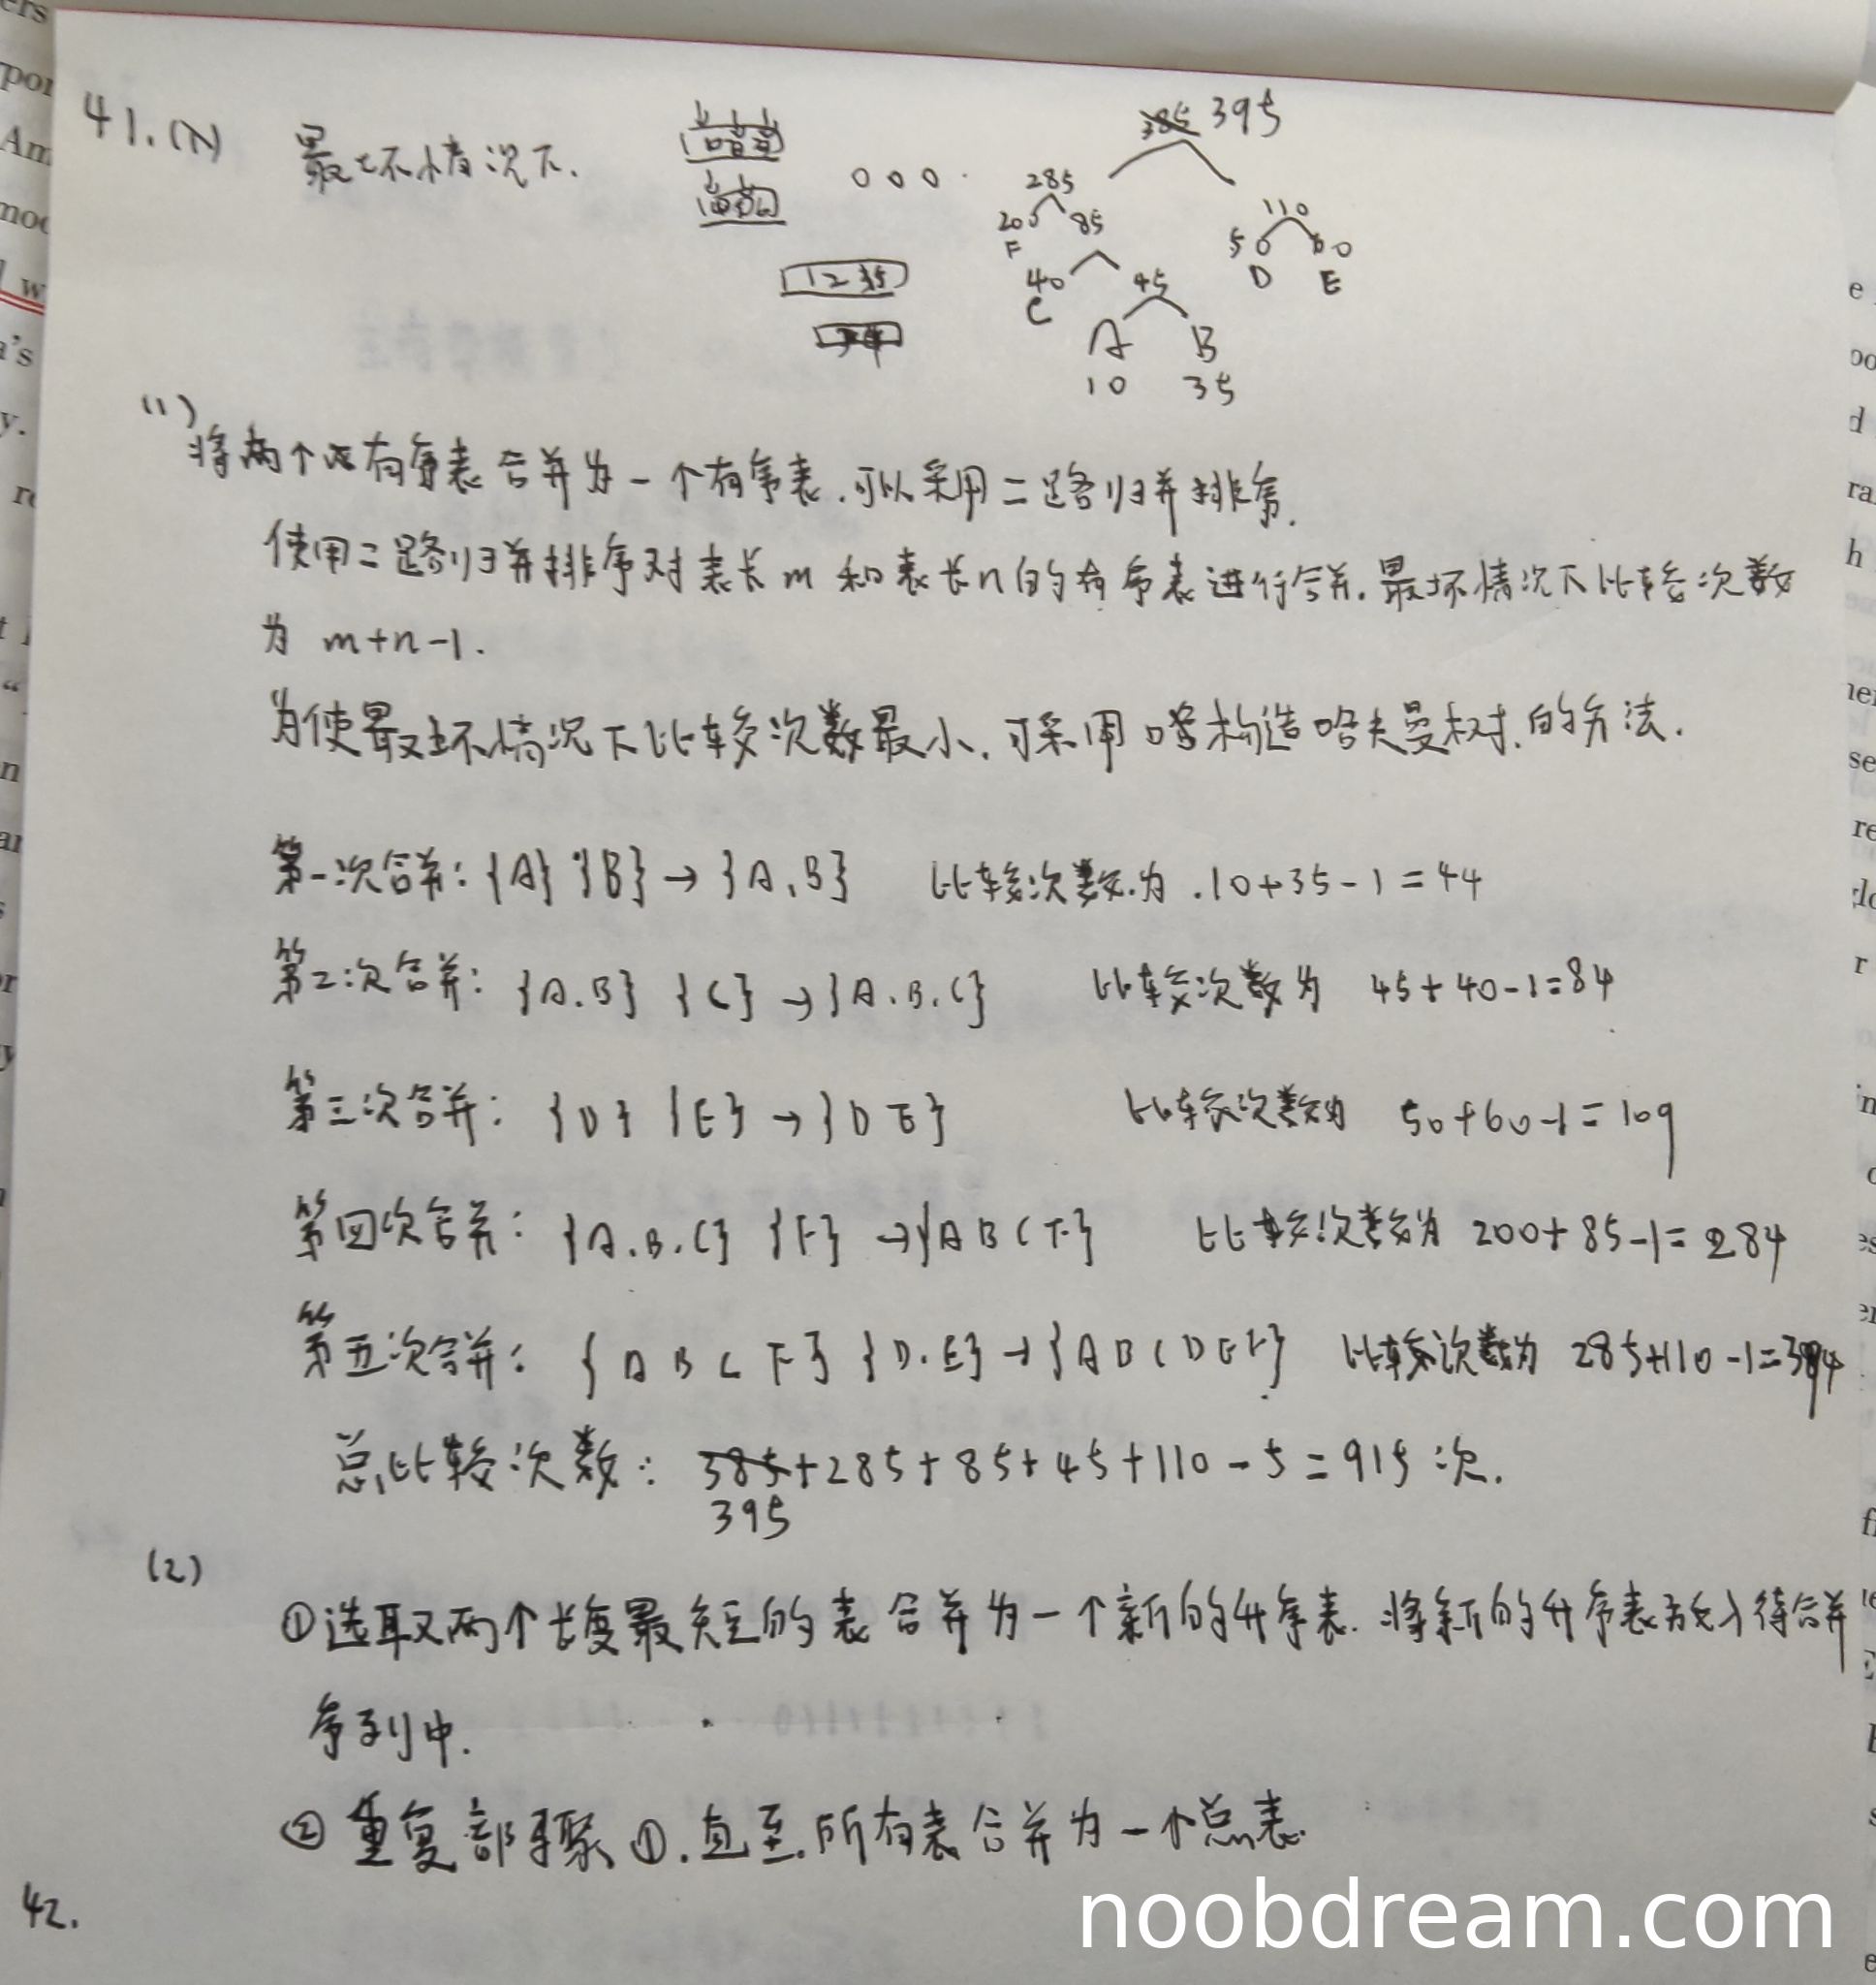 41.
最坏情况下.
385 395
285
110
200 85
F
50 60
D E
40 45
C
A B
10 35
1 2 35
(1)
将两个有序表合并为一个有序表.可以采用二路归并排序.
使用二路归并排序对表长m和表长n的有序表进行合并.最坏情况下比较次数
为 m+n-1.
为使最坏情况下比较次数最小.可采用构造哈夫曼树的方法.
第一次合并: {A} {B} → {A,B} 比较次数为 10+35-1=44
第2次合并: {A.B} {C} → {A.B.C} 比较次数为 45+40-1=84
第三次合并: {D} {E} → {D E} 比较次数为 50+60-1=109
第四次合并: {A.B.C} {F} → {A B C F} 比较次数为 200+85-1=284
第五次合并: {A B C F} {D.E} → {A B C D E F} 比较次数为 285+110-1=394
总比较次数: 385+285+85+45+110-5=915次.
395
(2)
①选取两个长度最短的表合并为一个新的升序表.将新的升序表放入待合并
序列中.
②重复部骤①.直至所有表合并为一个总表.
42.
noobdream.com